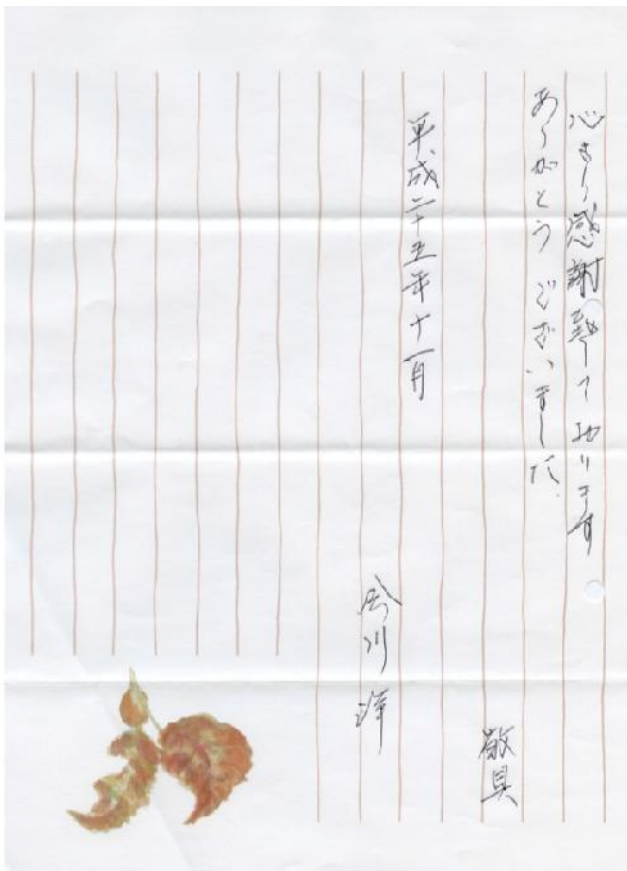 心より感謝致しております
ありがとう ございました.
敬具
平成二十五年十一月
川